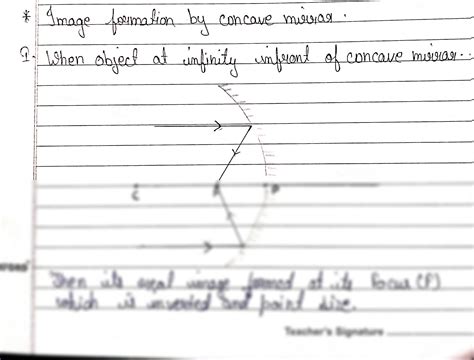 * Image formation by concave mirror.
1. When object at infinity infront of concave mirror..
C
P
Then its real image formed at its Focus (F)
which is inverted and point size.
Teacher's Signature